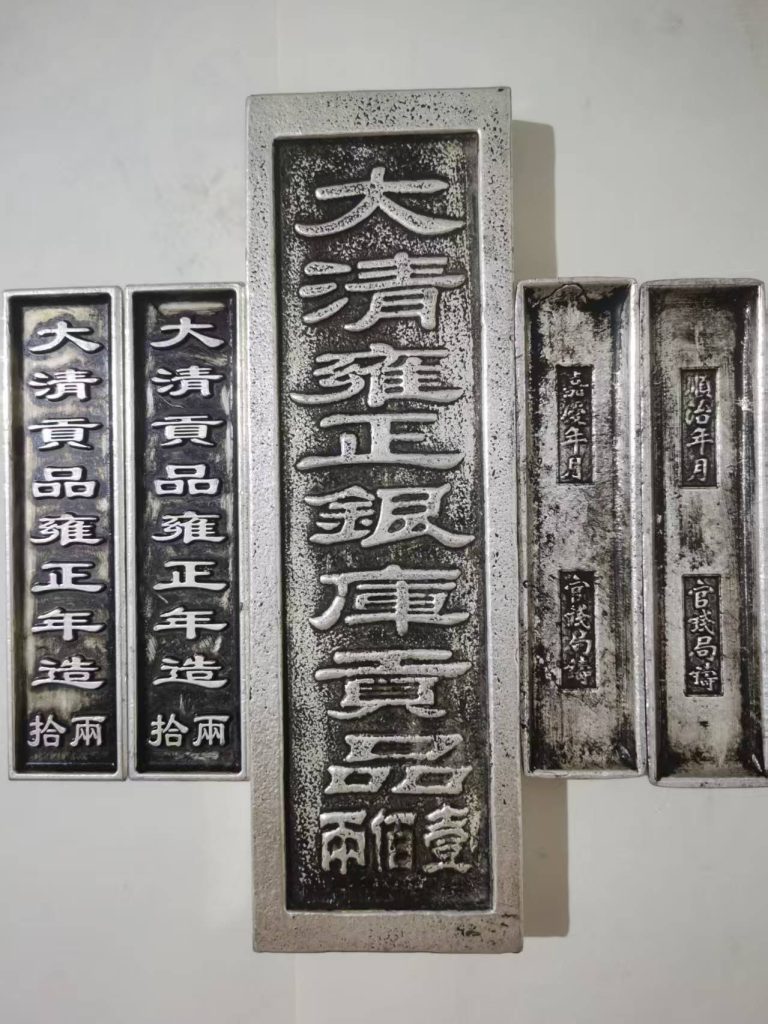 大清貢品雍正年造
拾兩
大清貢品雍正年造
拾兩
大清雍正銀庫貢品
壹佰兩
嘉慶年月
官錢局鑄
順治年月
官錢局鑄